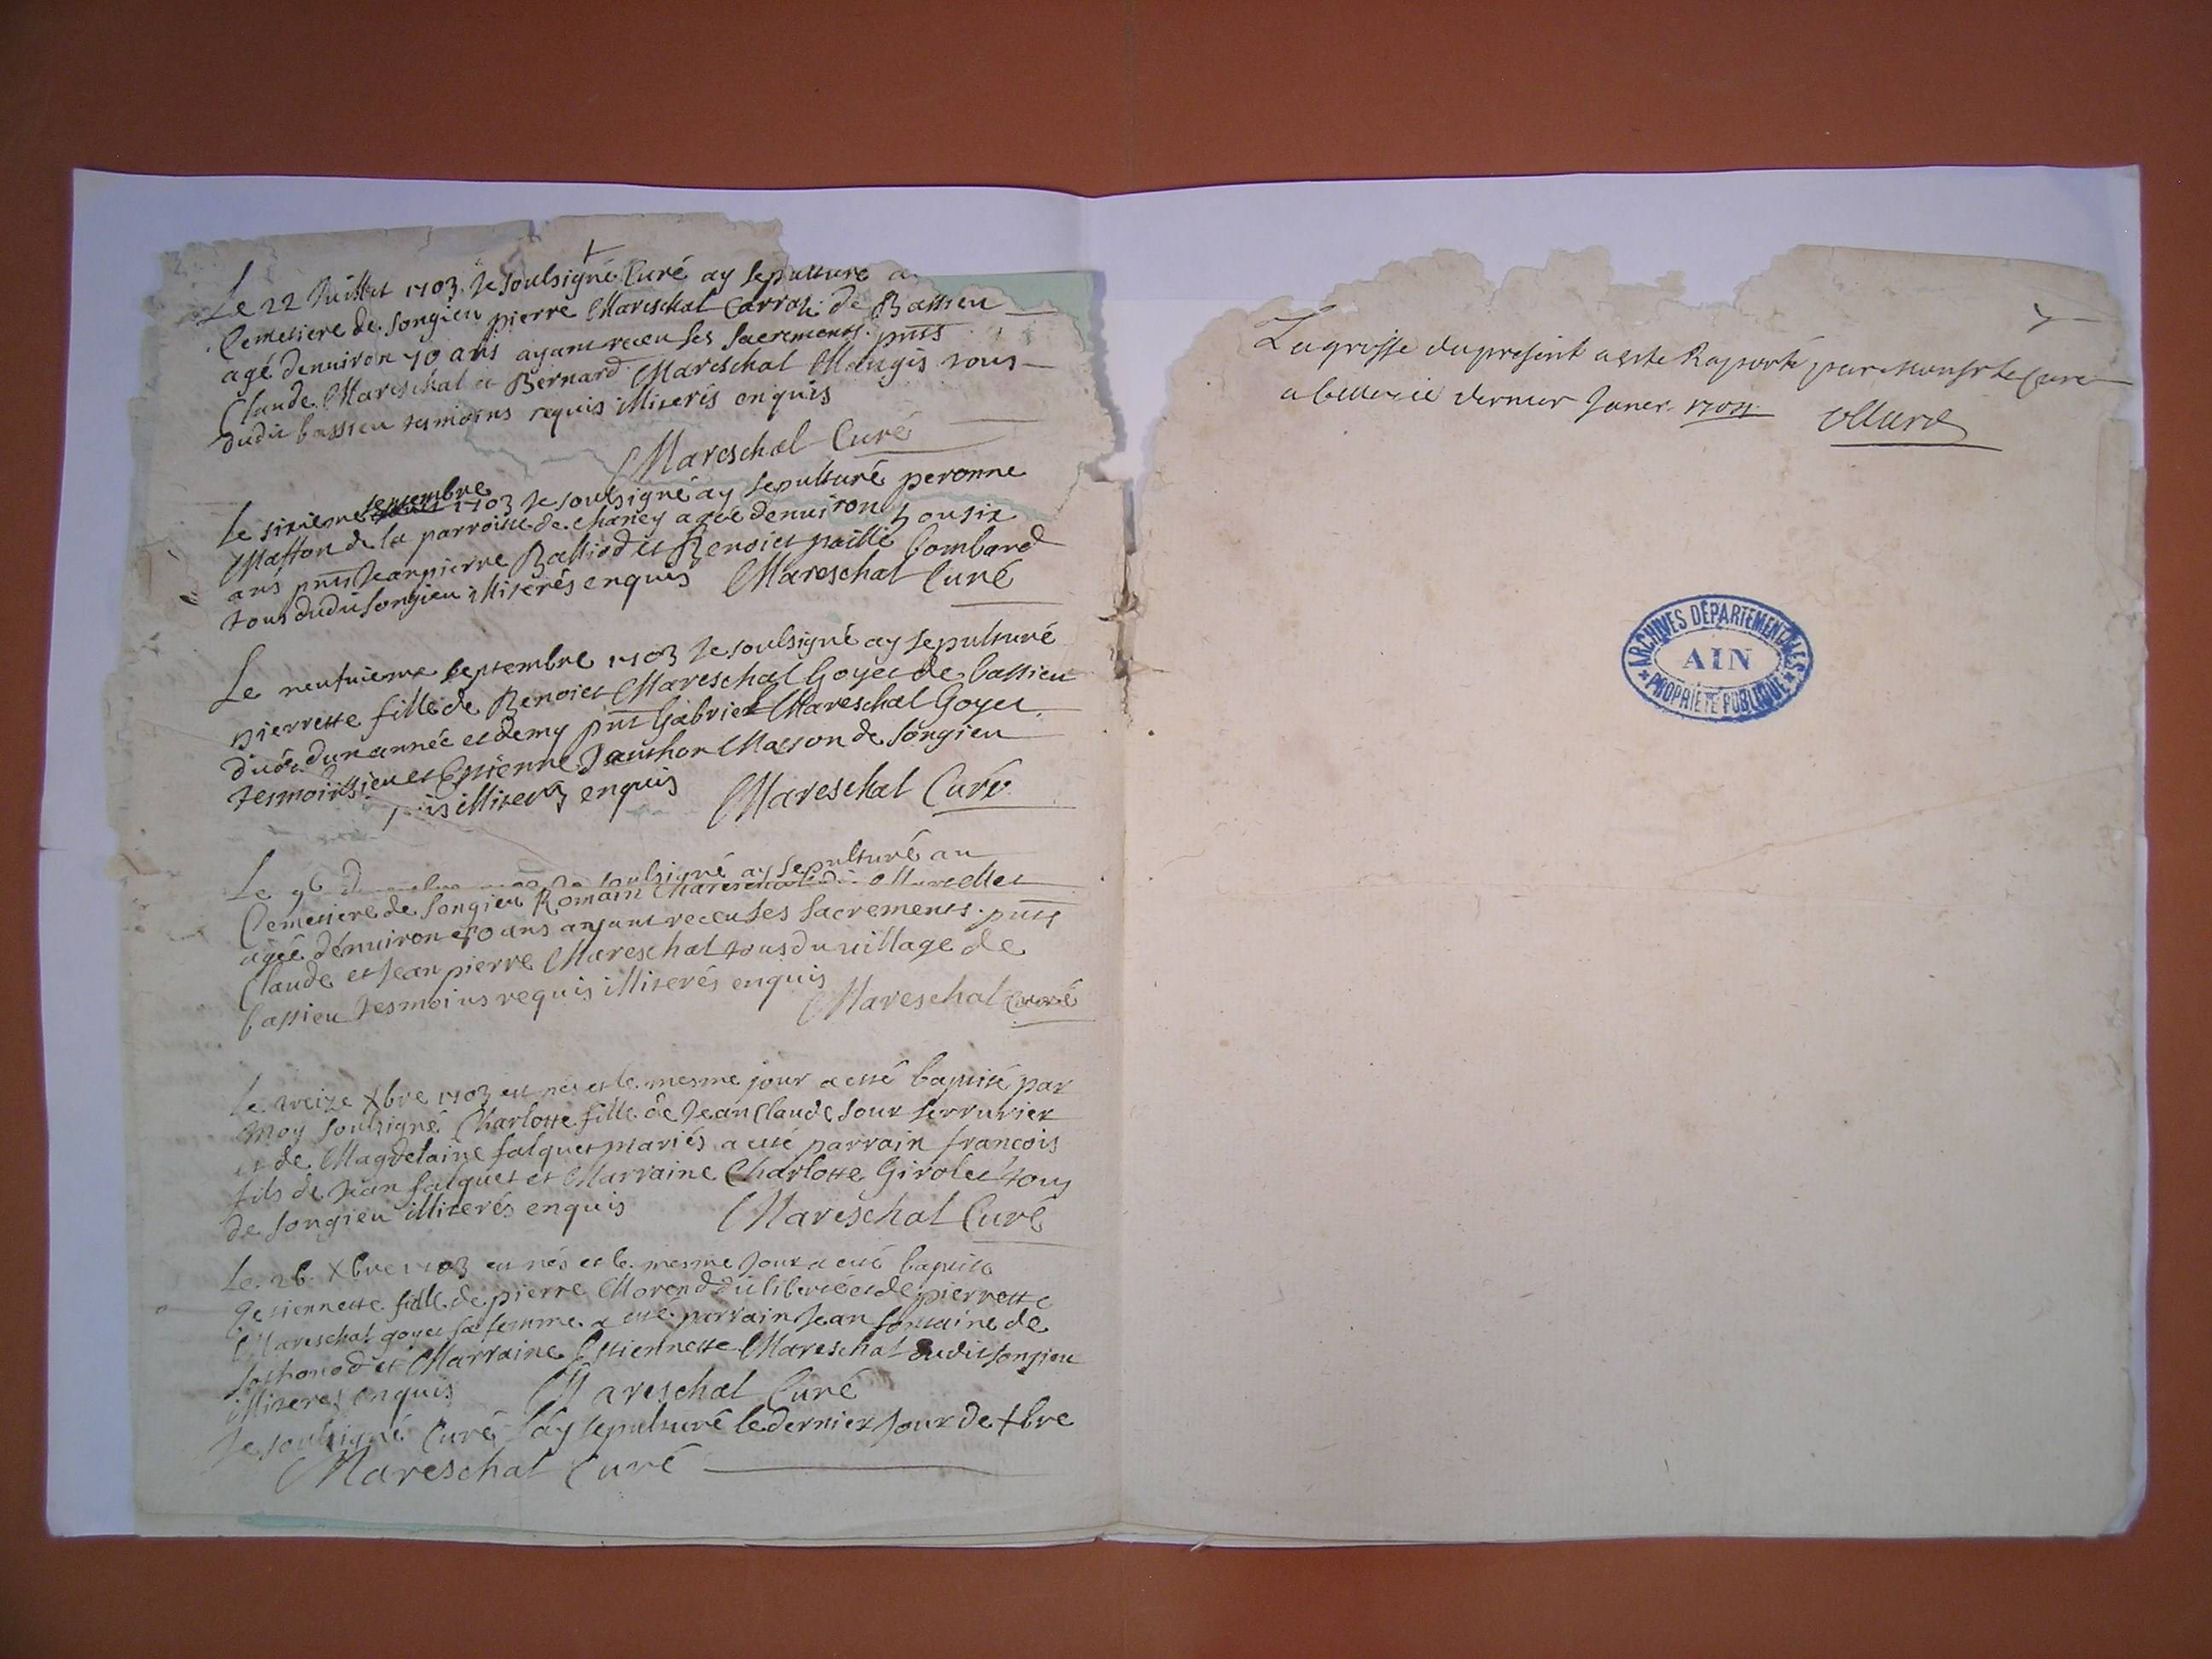 Le 22 Juillet 1703 Je soulsigné Curé ay sepulturé a
Cemetiere de songieu pierre Mareschal Carraz de Bassieu
agé denuiron 70 ans ayant receu ses sacrements. pnts
Claude Mareschal et Bernard Mareschal Maugis tous
dudit bassieu tesmoins requis illiterés enquis
Mareschal Curé
Le sixieme septembre 1703 Je soulsigné ay sepulturé peronne
Masson de la parroisse de Chaney agée denuiron 5 ou six
ans pnts Jeanpierre Balliod et Benoict paillé Combard
tous dudit songieu illiterés enquis Mareschal Curé
Le neufuieme septembre 1703 Je soulsigné ay sepulturé
pierrette fille de Benoict Mareschal Goyet de bassieu
dun année et demy pnt Gabriel Mareschal Goyet
tesmoins et Estienne Masson de songieu
illiterés enquis Mareschal Curé
Le soulsigné ay sepulturé au
Cemetiere de songieu Romain Mareschal
agée denuiron ans ayant receu ses sacrements. pnts
Claude et Jean pierre Mareschal tous du uillage de
bassieu tesmoins requis illiterés enquis
Mareschal Curé
Le treize Xbre 1703 est nés et le mesme jour a esté baptisé par
moy soulsigné Charlotte fille de Jean Claude Serrurier
et de Magdelaine falquet mariés a esté parrain francois
fils de Jean falquet et Marraine Charlotte Girolet tous
de songieu illiterés enquis Mareschal Curé
Le 26 Xbre 1703 est nés et le mesme Jour a esté baptisé
Estiennette fille de pierre Morend dit liberté et de pierrette
Mareschal goyet sa femme a esté parrain Jean fontaine de
et Marraine Estiennette Mareschal dudit songieu
illiterés enquis Mareschal Curé
Je soulsigné Curé lay sepulturé le dernier Jour de Xbre
Mareschal Curé
La grosse du present a este Rapporté par monsr le Curé
a belley ce dernier Janer 1704
ARCHIVES DÉPARTEMENTALES
AIN
PROPRIÉTÉ PUBLIQUE